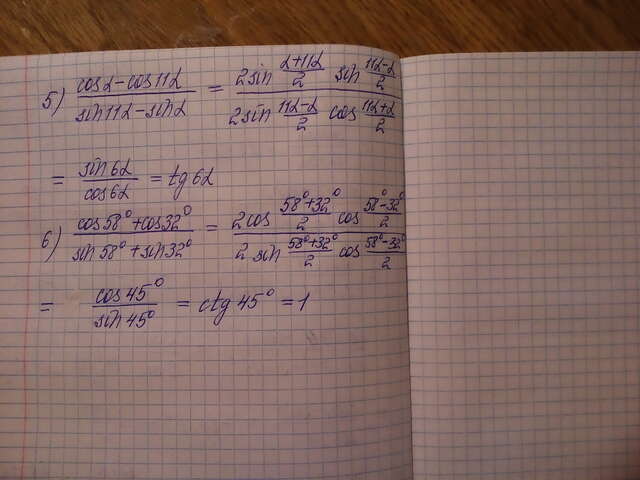 5) (cosα-cos11α)/(sin11α-sinα) = (2sin (α+11α)/2 sin (11α-α)/2)/(2sin (11α-α)/2 cos (11α+α)/2)
= sin6α/cos6α = tg6α
6) (cos58°+cos32°)/(sin58°+sin32°) = (2cos (58°+32°)/2 cos (58°-32°)/2)/(2 sin (58°+32°)/2 cos (58°-32°)/2)
= cos45°/sin45° = ctg45° = 1